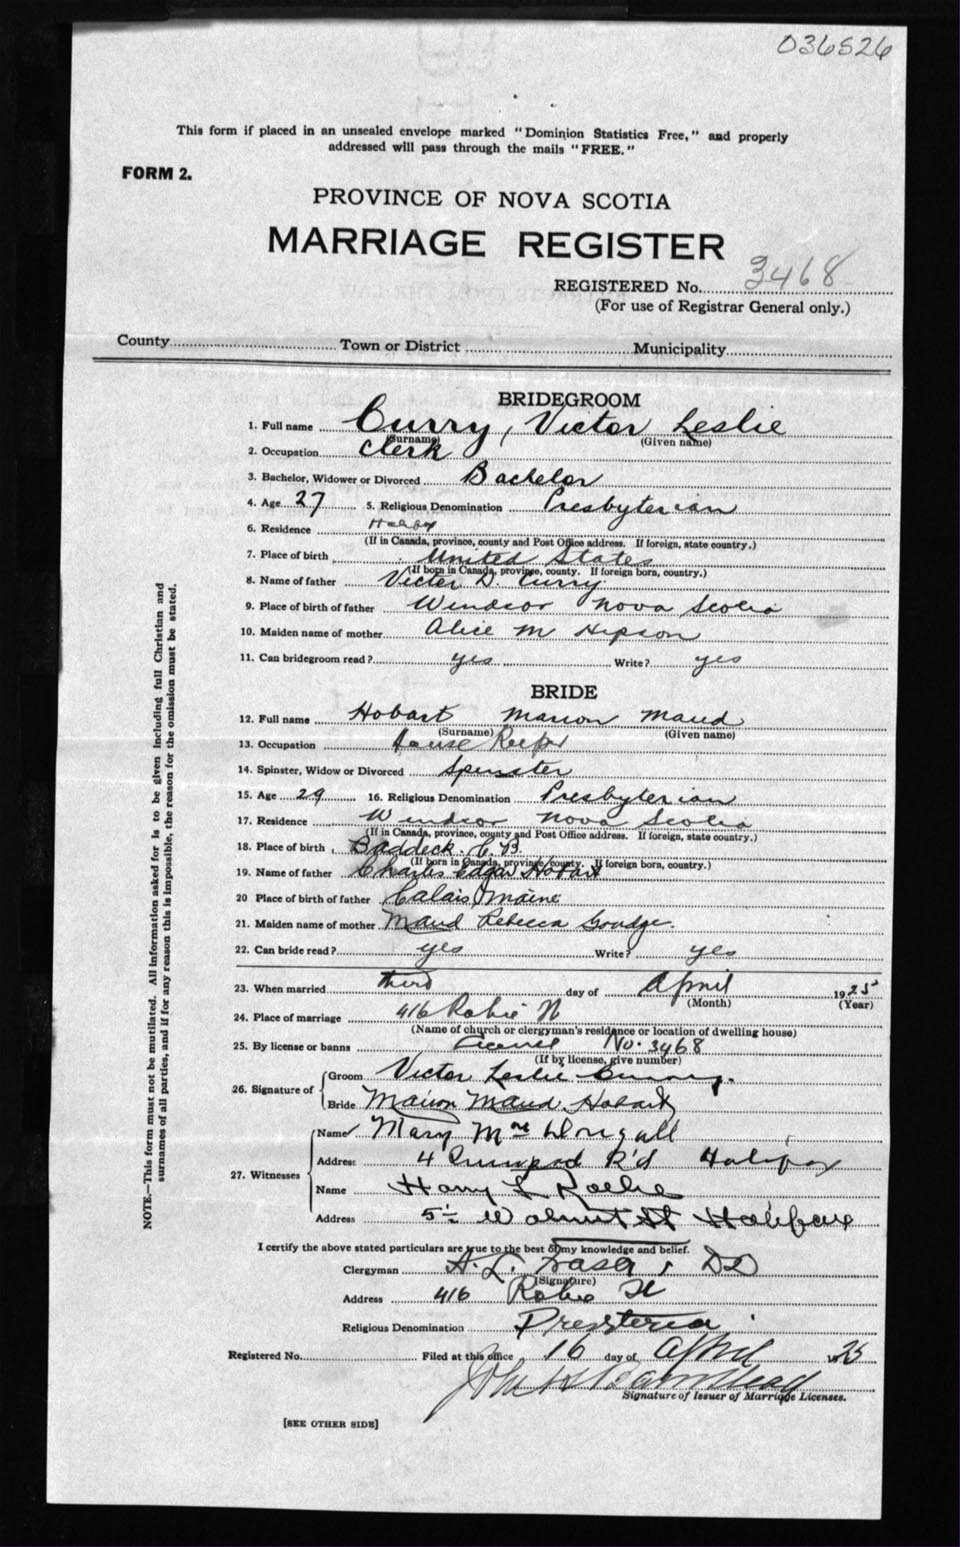 036526
This form if placed in an unsealed envelope marked "Dominion Statistics Free," and properly
addressed will pass through the mails "FREE."
FORM 2.
PROVINCE OF NOVA SCOTIA
MARRIAGE REGISTER
REGISTERED No. 3468
(For use of Registrar General only.)
County Town or District Municipality
BRIDEGROOM
1. Full name Curry, Victor Leslie
(Surname) (Given name)
2. Occupation Clerk
3. Bachelor, Widower or Divorced Bachelor
4. Age 27 5. Religious Denomination Presbyterian
6. Residence Halifax
(If in Canada, province, county and Post Office address. If foreign, state country.)
7. Place of birth United States
(If born in Canada, province, county. If foreign born, country.)
8. Name of father Victor D. Curry
9. Place of birth of father Windsor Nova Scotia
10. Maiden name of mother Alice M Hipson
11. Can bridegroom read? yes Write? yes
BRIDE
12. Full name Hobart Marion Maud
(Surname) (Given name)
13. Occupation House Keeper
14. Spinster, Widow or Divorced Spinster
15. Age 29 16. Religious Denomination Presbyterian
17. Residence Windsor Nova Scotia
(If in Canada, province, county and Post Office address. If foreign, state country.)
18. Place of birth Baddeck. C.B.
(If born in Canada, province, county. If foreign born, country.)
19. Name of father Charles Edgar Hobart
20 Place of birth of father Calais Maine
21. Maiden name of mother Maud Rebecca Goudge.
22. Can bride read? yes Write? yes
23. When married third day of April 1925
(Month) (Year)
24. Place of marriage 416 Robie
(Name of church or clergyman's residence or location of dwelling house)
25. By license or banns License No. 3468
(If by license, give number)
26. Signature of Groom Victor Leslie Curry.
Bride Marion Maud Hobart
27. Witnesses Name Mary McDougall
Address 4 R'd Halifax
Name Harry L
Address Walnut St Halifax
I certify the above stated particulars are true to the best of my knowledge and belief.
Clergyman A. L. Fraser, DD
(Signature)
Address 416 Robie St
Religious Denomination Presbyterian
Registered No. Filed at this office 16 day of April 1925
Signature of Issuer of Marriage Licenses.
[SEE OTHER SIDE]
NOTE.—This form must not be mutilated. All information asked for is to be given including full Christian and
surnames of all parties, and if for any reason this is impossible, the reason for the omission must be stated.